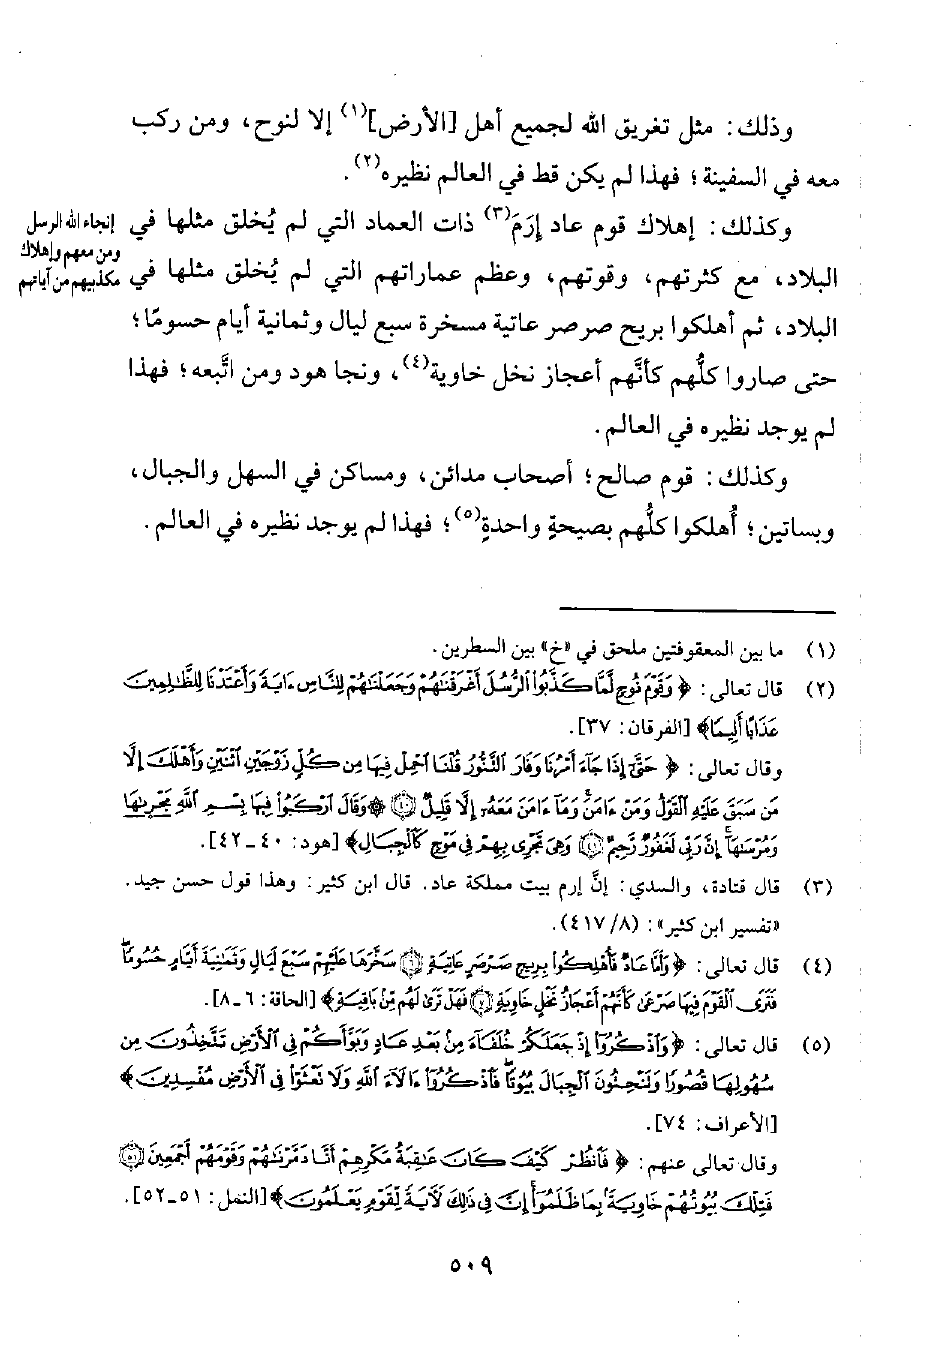 وذلك: مثل تغريق الله لجميع أهل [الأرض](١) إلا لنوح، ومن ركب
معه في السفينة؛ فهذا لم يكن قط في العالم نظيره(٢).
وكذلك: إهلاك قوم عاد إِرَمَ(٣) ذات العماد التي لم يُخلق مثلها في
البلاد، مع كثرتهم، وقوتهم، وعظم عماراتهم التي لم يُخلق مثلها في
البلاد، ثم أهلكوا بريح صرصر عاتية مسخرة سبع ليال وثمانية أيام حسومًا؛
حتى صاروا كلُّهم كأنَّهم أعجاز نخل خاوية(٤)، ونجا هود ومن اتَّبعه؛ فهذا
لم يوجد نظيره في العالم.
وكذلك: قوم صالح؛ أصحاب مدائن، ومساكن في السهل والجبال،
وبساتين؛ أُهلكوا كلُّهم بصيحةٍ واحدةٍ(٥)؛ فهذا لم يوجد نظيره في العالم.
إنجاء الله الرسل
ومن معهم وإهلاك
مكذبيهم من آياتهم
(١) ما بين المعقوفتين ملحق في «خ» بين السطرين.
(٢) قال تعالى: ﴿وَقَوْمَ نُوحٍ لَّمَّا كَذَّبُوا الرُّسُلَ أَغْرَقْنَاهُمْ وَجَعَلْنَاهُمْ لِلنَّاسِ ءَايَةً وَأَعْتَدْنَا لِلظَّالِمِينَ
عَذَابًا أَلِيمًا﴾ [الفرقان: ٣٧].
وقال تعالى: ﴿حَتَّى إِذَا جَاءَ أَمْرُنَا وَفَارَ التَّنُّورُ قُلْنَا احْمِلْ فِيهَا مِن كُلٍّ زَوْجَيْنِ اثْنَيْنِ وَأَهْلَكَ إِلَّا
مَن سَبَقَ عَلَيْهِ الْقَوْلُ وَمَنْ ءَامَنَ وَمَا ءَامَنَ مَعَهُ إِلَّا قَلِيلٌ ۝٤٠ ۞ وَقَالَ ارْكَبُوا فِيهَا بِسْمِ اللَّهِ مَجْرِىٰهَا
وَمُرْسَاهَا إِنَّ رَبِّي لَغَفُورٌ رَّحِيمٌ ۝٤١ وَهِيَ تَجْرِي بِهِمْ فِي مَوْجٍ كَالْجِبَالِ﴾ [هود: ٤٠ـ٤٢].
(٣) قال قتادة، والسدي: إنَّ إرم بيت مملكة عاد. قال ابن كثير: وهذا قول حسن جيد.
«تفسير ابن كثير»: (٤١٧/٨).
(٤) قال تعالى: ﴿وَأَمَّا عَادٌ فَأُهْلِكُوا بِرِيحٍ صَرْصَرٍ عَاتِيَةٍ ۝٦ سَخَّرَهَا عَلَيْهِمْ سَبْعَ لَيَالٍ وَثَمَانِيَةَ أَيَّامٍ حُسُومًا
فَتَرَى الْقَوْمَ فِيهَا صَرْعَى كَأَنَّهُمْ أَعْجَازُ نَخْلٍ خَاوِيَةٍ ۝٧ فَهَلْ تَرَى لَهُم مِّن بَاقِيَةٍ﴾ [الحاقة: ٦ـ٨].
(٥) قال تعالى: ﴿وَاذْكُرُوا إِذْ جَعَلَكُمْ خُلَفَاءَ مِن بَعْدِ عَادٍ وَبَوَّأَكُمْ فِي الْأَرْضِ تَتَّخِذُونَ مِن
سُهُولِهَا قُصُورًا وَتَنْحِتُونَ الْجِبَالَ بُيُوتًا فَاذْكُرُوا ءَالَاءَ اللَّهِ وَلَا تَعْثَوْا فِي الْأَرْضِ مُفْسِدِينَ﴾
[الأعراف: ٧٤].
وقال تعالى عنهم: ﴿فَانظُرْ كَيْفَ كَانَ عَاقِبَةُ مَكْرِهِمْ أَنَّا دَمَّرْنَاهُمْ وَقَوْمَهُمْ أَجْمَعِينَ ۝٥١
فَتِلْكَ بُيُوتُهُمْ خَاوِيَةً بِمَا ظَلَمُوا إِنَّ فِي ذَلِكَ لَآيَةً لِّقَوْمٍ يَعْلَمُونَ﴾ [النمل: ٥١ـ٥٢].
٥٠٩